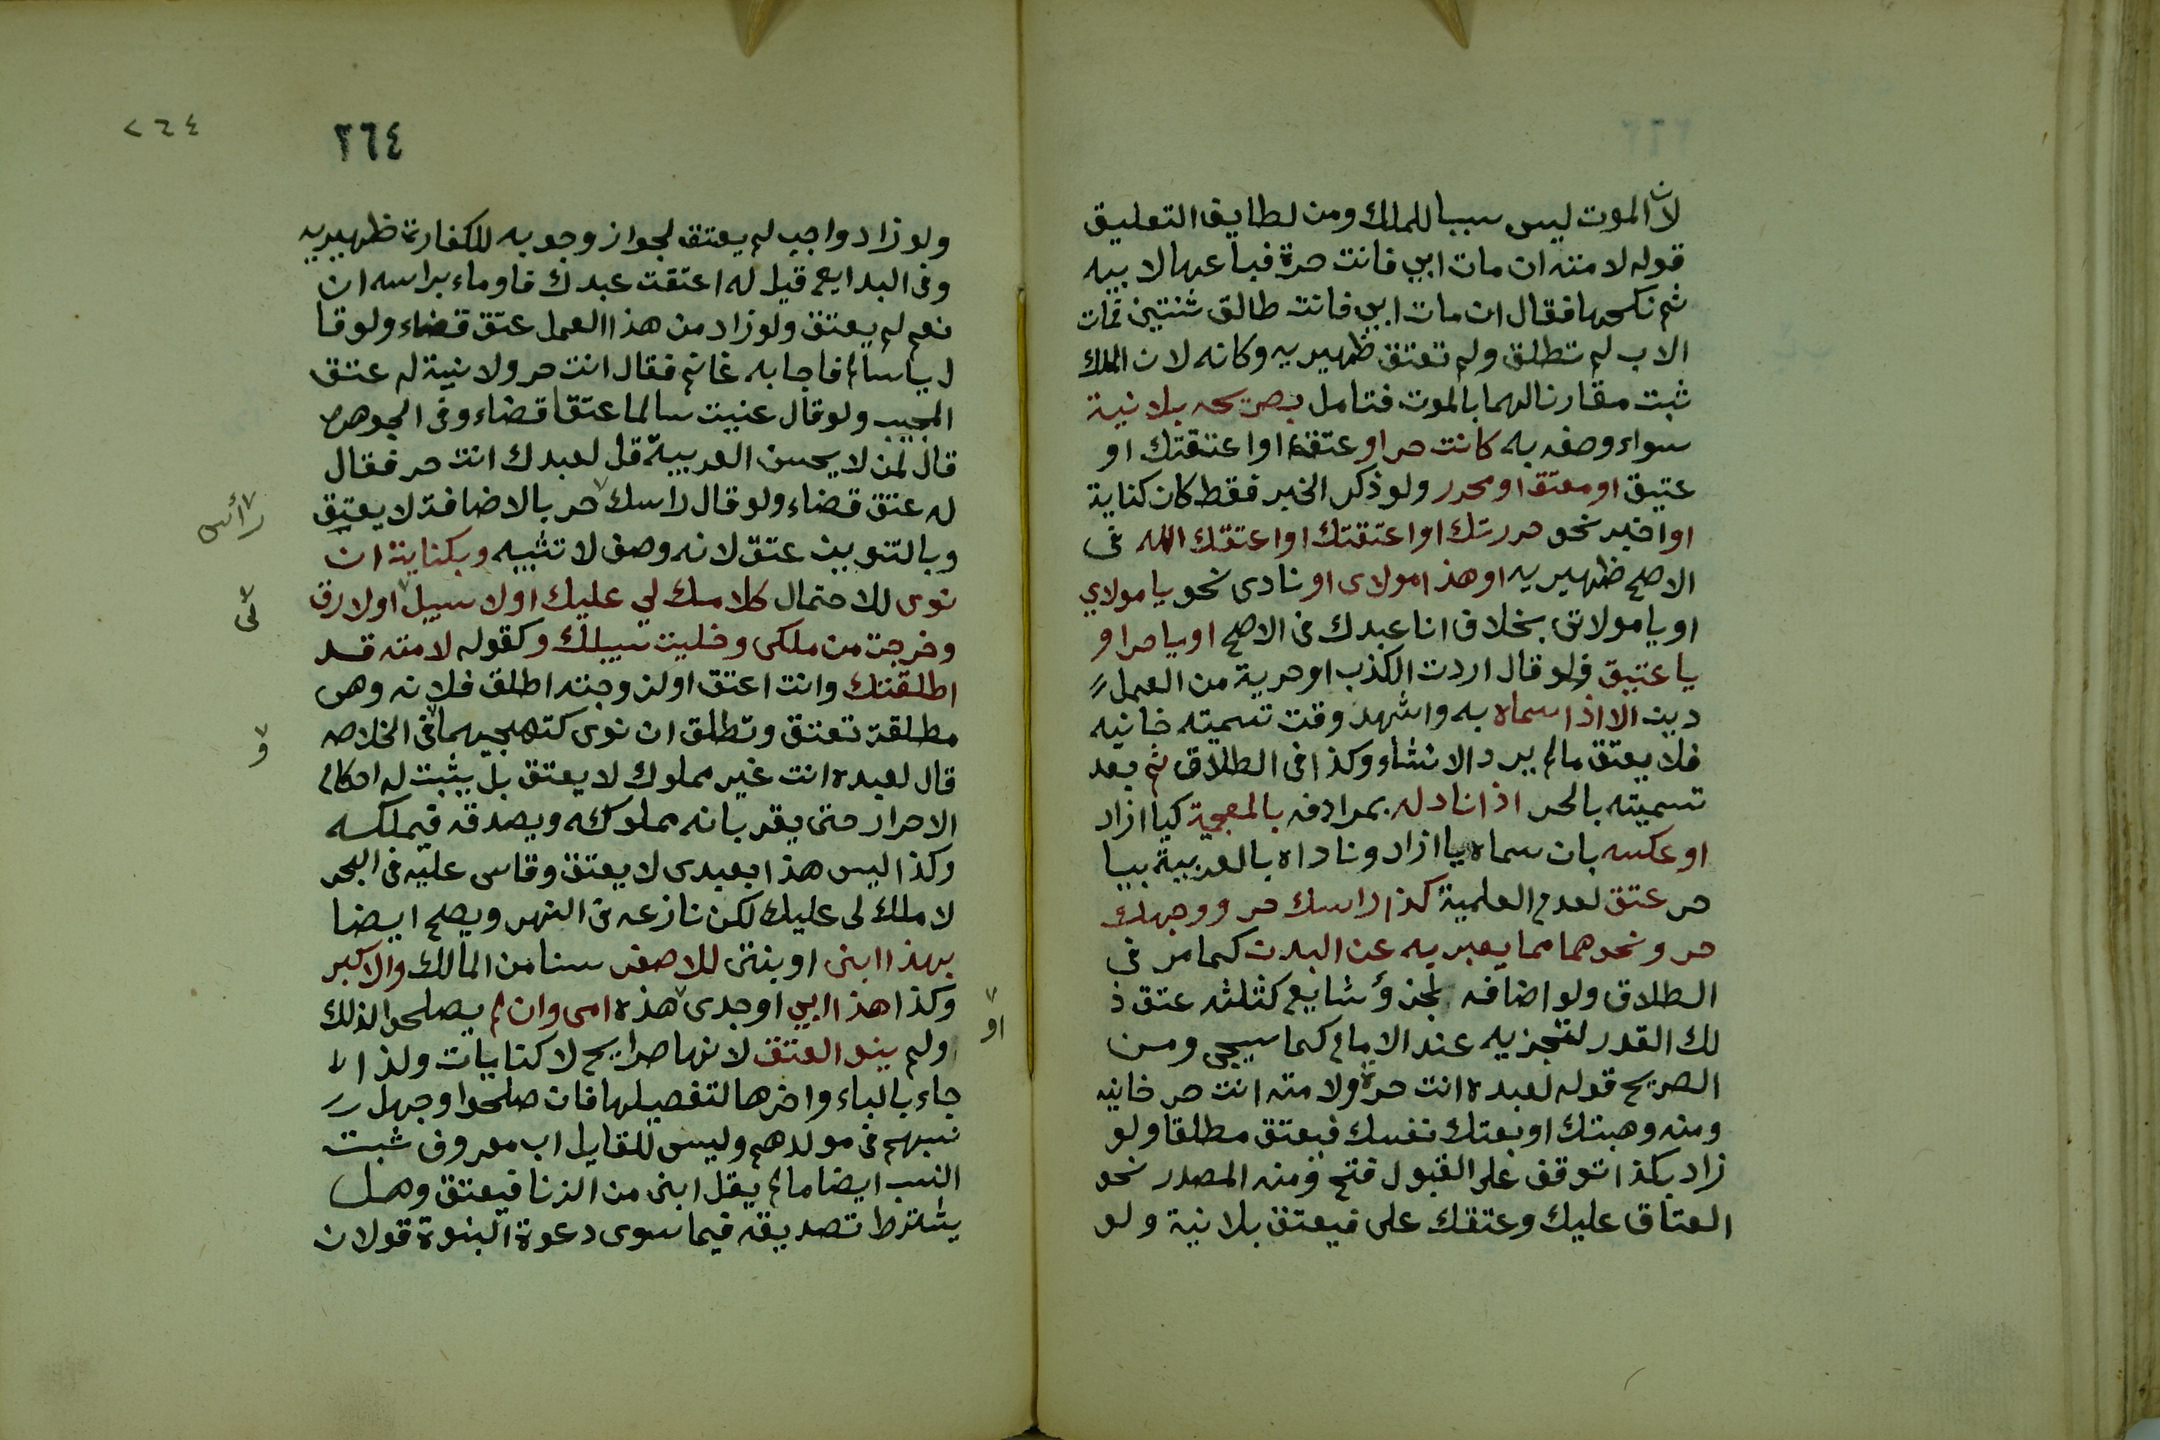 لان الموت ليس سببا للملك ومن لطايف التعليق
قوله لامته ان مات ابي فانت حرة فباعها لابيه
ثم نكحها فقال ان مات ابي فانت طالق ثنتين فمات
الاب لم تطلق ولم تعتق ظهيريه وكانه لان الملك
ثبت مقارنا لهما بالموت فتامل بصريحه بلا نية
سواء وصفه به كانت حر او عتق او اعتقتك او
عتيق او معتق او محرر ولو ذكر الخبر فقط كان كناية
او اخبر نحو حررتك او اعتقتك او اعتقك الله فى
الاصح ظهيريه او هذا مولاى او نادى نحو يا مولاي
او يا مولاتى بخلاف انا عبدك فى الاصح او يا حر او
يا عتيق فلو قال اردت الكذب او حرية من العمل
دين الا اذا سماه به واشهد وقت تسميته خانيه
فلا يعتق مالم يرد الانشاء وكذا فى الطلاق ثم بعد
تسميته بالحر اذا نادله بمرادفه بالمعجمية كيا ازاد
او عكسه بان سماه يا ازاد وناداه بالعربية بيا
حر عتق لعدم العلمية كذا راسك حر ووجهك
حر ونحوهما مما يعبر به عن البدن كما مر فى
الطلاق ولو اضافه لجزؤ شايع كثلثه عتق ذ
لك القدر لتجزيه عند الامام كما سيجى ومن
الصريح قوله لعبده انت حرة ولامته انت حر خانيه
ومنه وهبتك او بعتك نفسك فيعتق مطلقا ولو
زاد بكذا توقف على القبول فتح ومنه المصدر نحو
العتاق عليك وعتقك على فيعتق بلا نية ولو
٢٦٤
٢٦٤
ولو زاد واجب لم يعتق لجواز وجوبه للكفارة ظهيريه
وفى البدايع قيل له اعتقت عبدك فاوماء براسه ان
نعم لم يعتق ولو زاد من هذا العمل عتق قضاء ولو قا
ل يا سالم فاجابه غانم فقال انت حر ولا نية له عتق
المجيب ولو قال عنيت سالما عتقا قضاء وفى الجوهره
قال لمن لا يحسن العربية قل لعبدك انت حر فقال
له عتق قضاء ولو قال راسك حر بالاضافة لا يعتق
رأس
وبالتنوين عتق لانه وصف لا تشبيه وبكناية ان
نوى للاحتمال كلا ملك لي عليك او لا سبيل او لا رق
لى
وخرجت من ملكى وخليت سبيلك وكقوله لامته قد
اطلقتك وانت اعتق او لزوجته اطلق فلانه وهى
مطلقة تعتق وتطلق ان نوى كتهجيهما فى الخلاصه
و
قال لعبده انت غير مملوك لا يعتق بل يثبت له احكام
الاحرار حتى يقر بانه مملوكه ويصدقه فيملكه
وكذا ليس هذا بعبدى لا يعتق وقاس عليه فى البحر
لا ملك لى عليك لكن نازعه فى النهر ويصح ايضا
بهذا ابنى او بنتى للاصغر سنا من المالك والاكبر
وكذا هذا ابي او جدى هذه امى وان لم يصلحوا لذلك
او
ولم ينو العتق لانها صرايح لا كنايات ولذا
جاء بالباء واخرها لتفصيلها فان صلحوا وجهل
نسبهم فى مولدهم وليس للقايل اب معروف ثبت
النسب ايضا مالم يقل ابنى من الزنا فيعتق وهل
يشترط تصديقه فيما سوى دعوة البنوة قولان